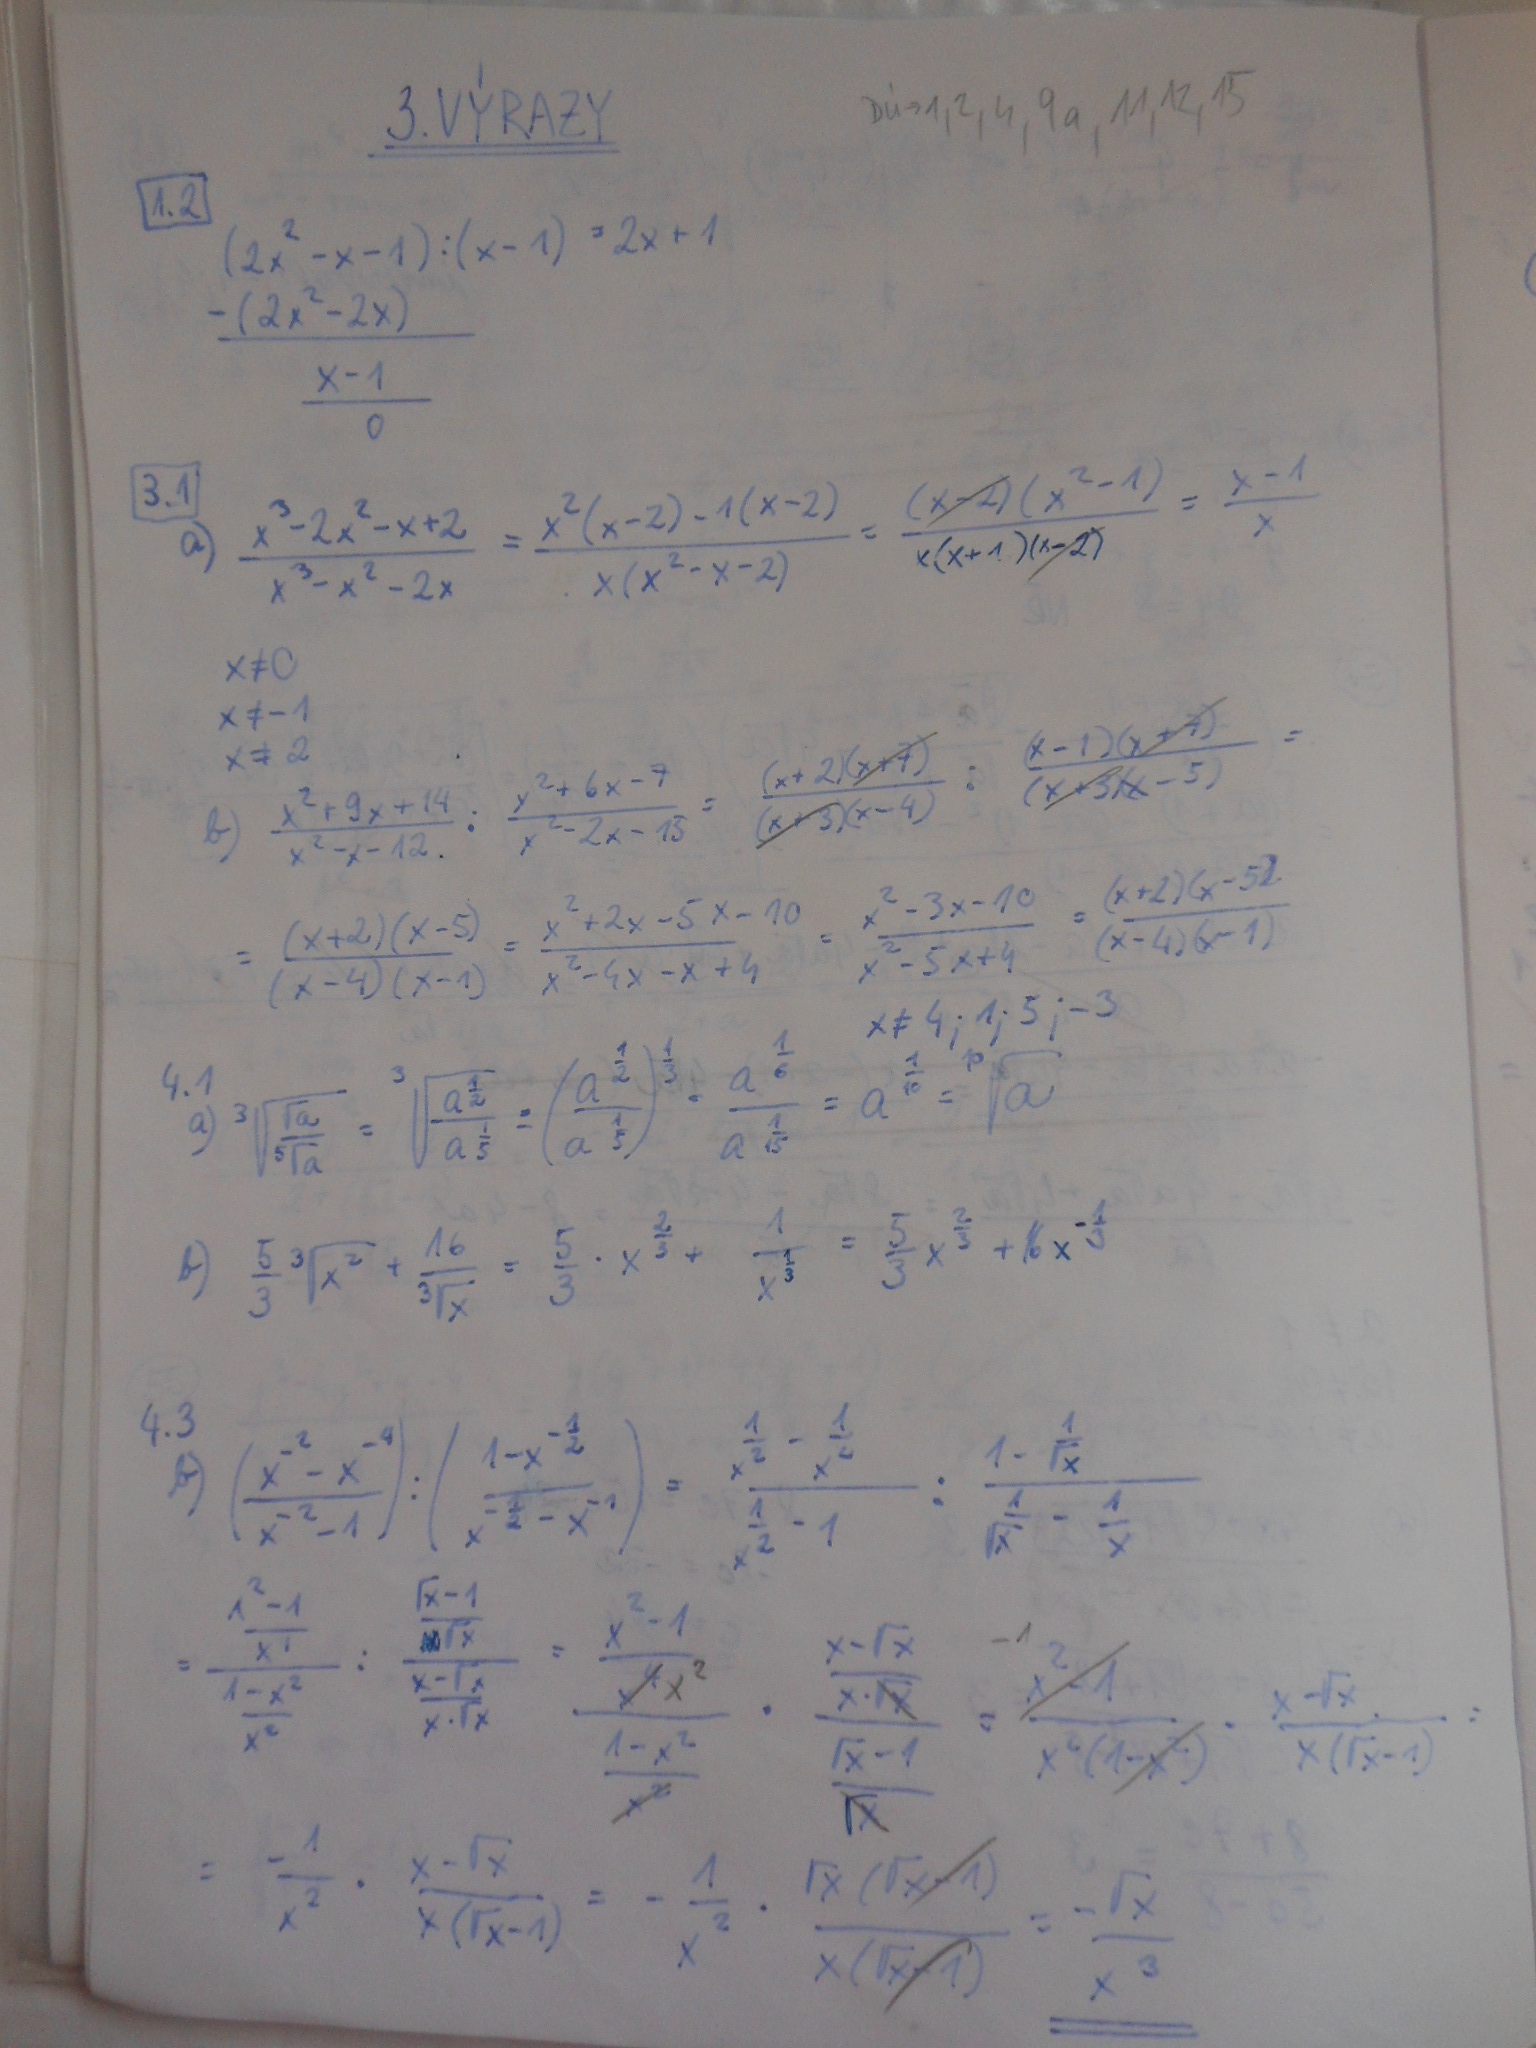 3. VÝRAZY
DÚ→1, 2, 4, 9a, 11, 12, 15
1.2
(2x² - x - 1) : (x - 1) = 2x + 1
-(2x² - 2x)
x - 1
0
3.1
a) (x³ - 2x² - x + 2)/(x³ - x² - 2x) = (x²(x-2) - 1(x-2))/(x(x² - x - 2)) = ((x-2)(x²-1))/(x(x+1)(x-2)) = (x-1)/x
x ≠ 0
x ≠ -1
x ≠ 2
b) (x² + 9x + 14)/(x² - x - 12) : (x² + 6x - 7)/(x² - 2x - 15) = ((x+2)(x+7))/((x+3)(x-4)) : ((x-1)(x+7))/((x+3)(x-5)) =
= ((x+2)(x-5))/((x-4)(x-1)) = (x² + 2x - 5x - 10)/(x² - 4x - x + 4) = (x² - 3x - 10)/(x² - 5x + 4) = ((x+2)(x-5))/((x-4)(x-1))
x ≠ 4; 1; 5; -3
4.1
a) ³√(√a/⁵√a) = ³√(a^(1/2)/a^(1/5)) = (a^(1/2)/a^(1/5))^(1/3) = a^(1/6)/a^(1/15) = a^(1/10) = ¹⁰√a
b) 5/3 ³√x² + 16/³√x = 5/3 · x^(2/3) + 1/x^(1/3) = 5/3 x^(2/3) + 16x^(-1/3)
4.3
b) ((x⁻² - x⁻⁴)/(x⁻² - 1)) : ((1 - x^(-1/2))/(x^(-1/2) - x⁻¹)) = (1/x² - 1/x²)/(1/x² - 1) : (1 - 1/√x)/(1/√x - 1/x)
= ((1² - 1)/x⁴)/((1 - x²)/x²) : ((√x - 1)/√x)/((x - √x)/(x·√x)) = ((x² - 1)/(x⁴ x²))/((1 - x²)/x²) · ((x - √x)/(x·√x))/((√x - 1)/√x) = -1 (x² - 1)/(x²(1 - x²)) · (x - √x)/(x(√x - 1)) =
= -1/x² · (x - √x)/(x(√x - 1)) = - 1/x² · (√x(√x - 1))/(x(√x - 1)) = -√x/x³